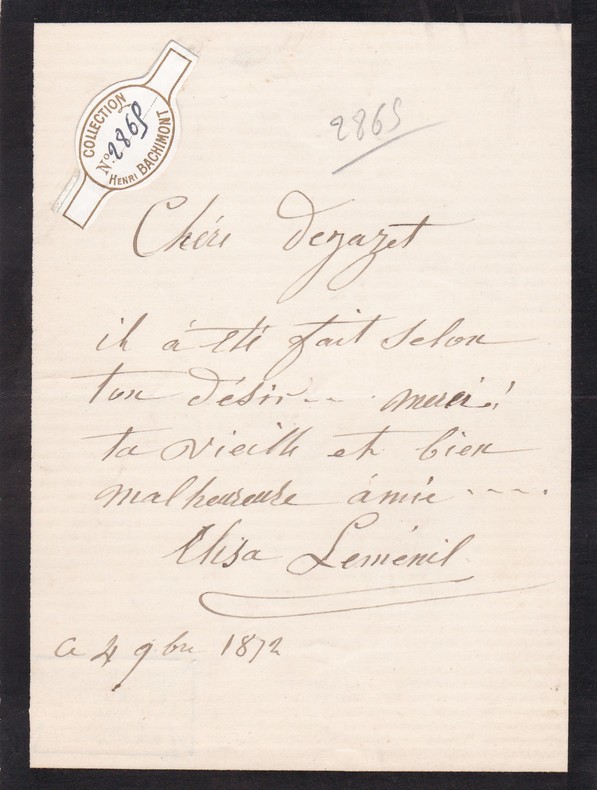 COLLECTION
No. 2865
HENRI BACHIMONT
2865
Chére Dejazet
il á été fait selon
ton désir... merci!
ta vieille et bien
malheureuse ámie....
Elisa Leménil
Ce 4 9bre 1872